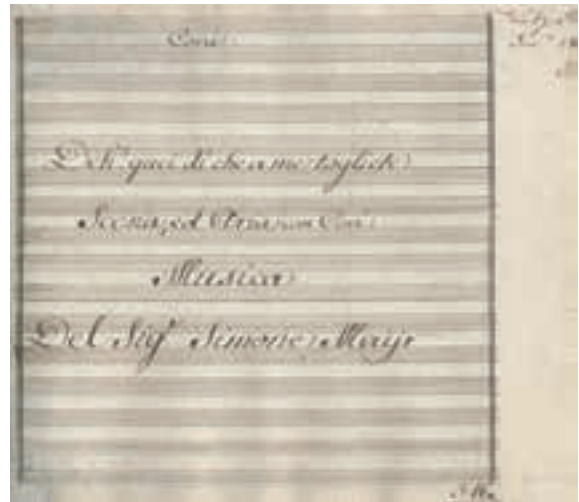 Cori
Deh! quei dì che a me togliete
Scena, ed Aria con Cori
Musica
Del Sigr. Simone Mayr